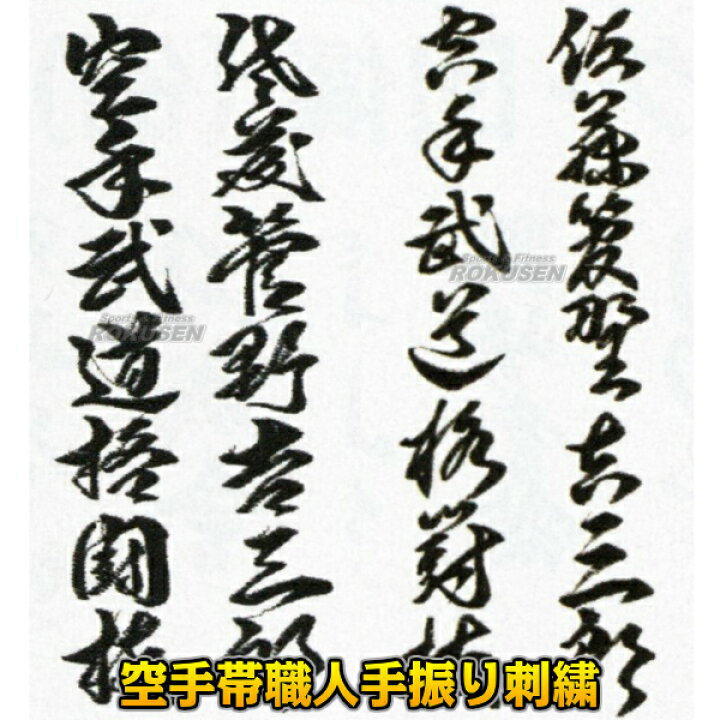 佐藤菅野吉三郎
空手武道格闘技
佐藤菅野吉三郎
空手武道格闘技
Sports & Fitness
ROKUSEN
Sports & Fitness
ROKUSEN
空手帯職人手振り刺繍